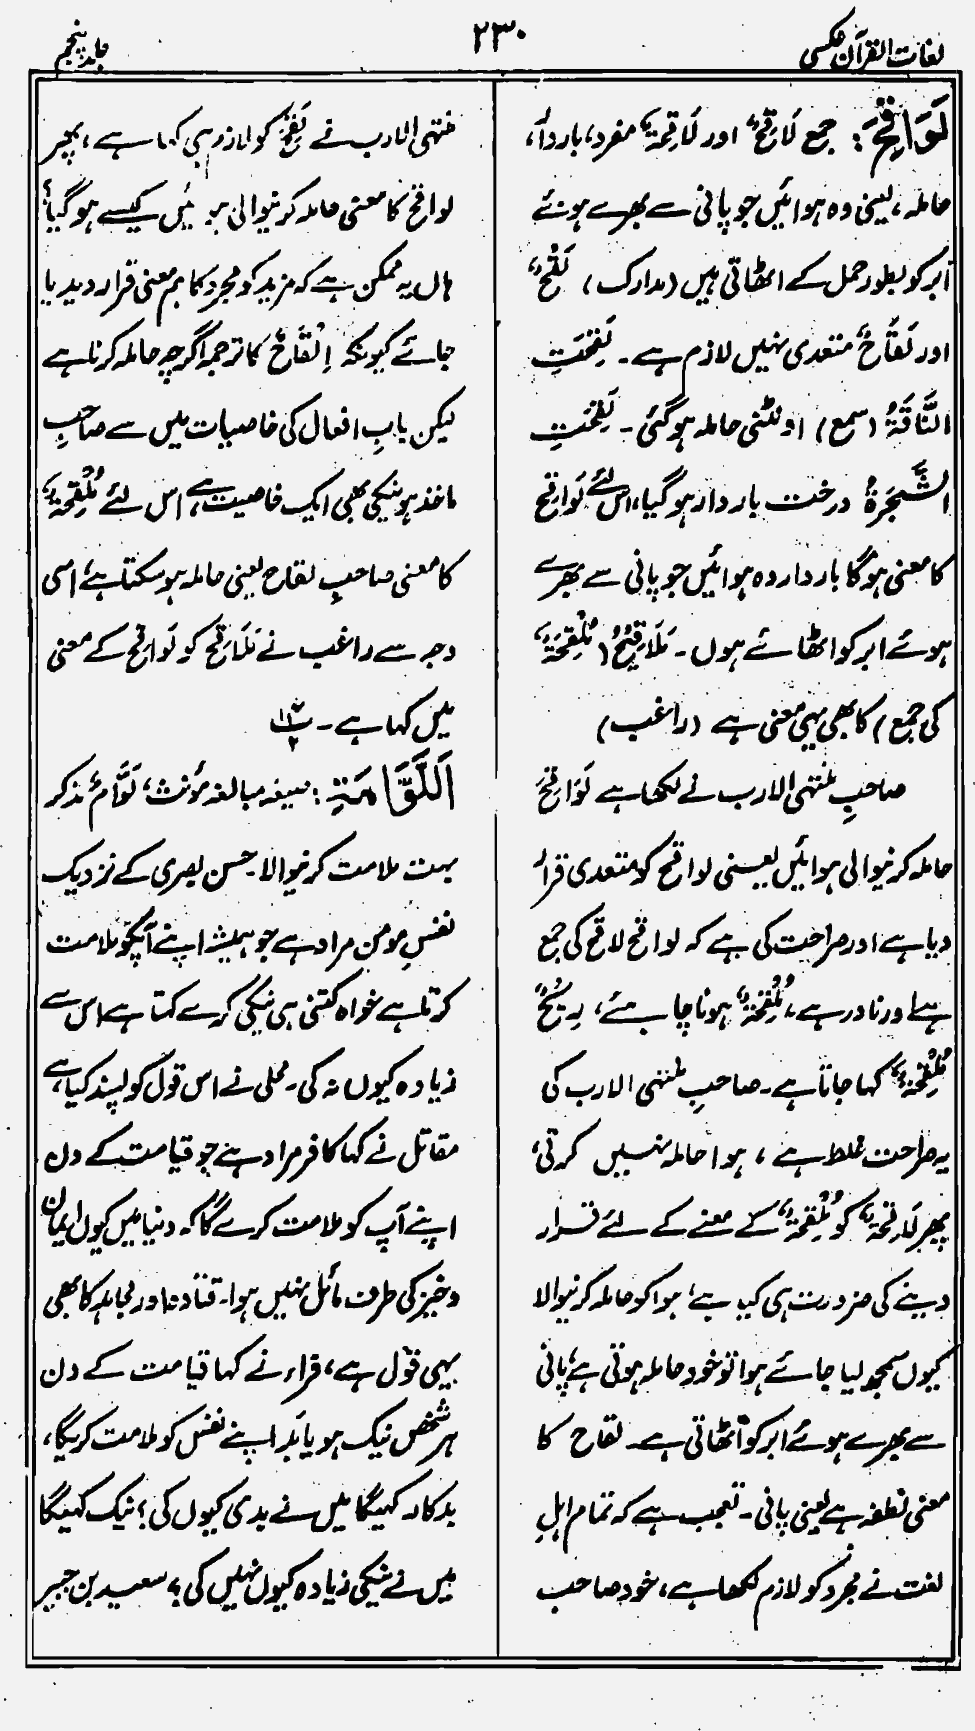 لغات القرآن عکسی
۲۳۰
جلد پنجم
لَوَاقِحَ: جمع لَاقِحٌ اور لَاقِحَةٌ مفرد، باردار،
حاملہ، یعنی وہ ہوائیں جو پانی سے بھرے ہوئے
ابر کو بطور حمل کے اٹھاتی ہیں (مدارک) لَقْحٌ
اور لَقَاحٌ متعدی نہیں لازم ہے۔ لَقِحَتِ
النَّاقَةُ (سمع) اونٹنی حاملہ ہو گئی۔ لَقِحَتِ
الشَّجَرَةُ درخت باردار ہو گیا، اس لئے لَوَاقِح
کا معنی ہو گا باردار وہ ہوائیں جو پانی سے بھرے
ہوئے ابر کو اٹھائے ہوں۔ مَلَاقِيْحُ (مُلْقِحَةٌ
کی جمع) کا بھی یہی معنی ہے (راغب)
صاحبِ منتہی الارب نے لکھا ہے لَوَاقِحَ
حاملہ کرنیوالی ہوائیں یعنی لواقح کو متعدی قرار
دیا ہے اور صراحت کی ہے کہ لواقح لاقح کی جمع
ہے اور نادر ہے، مُلْقِحَةٌ ہونا چاہئے، رِيْحٌ
مُلْقِحَةٌ کہا جاتا ہے۔ صاحبِ منتہی الارب کی
یہ صراحت غلط ہے، ہوا حاملہ نہیں کرتی،
پھر لَاقِحَةٌ کو مُلْقِحَةٌ کے معنے کے لئے قرار
دینے کی ضرورت ہی کیا ہے، ہوا کو حاملہ کرنیوالا
کیوں سمجھ لیا جائے ہوا تو خود حاملہ ہوتی ہے، پانی
سے بھرے ہوئے ابر کو اٹھاتی ہے۔ لقاح کا
معنی نطفہ ہے یعنی پانی۔ تعجب ہے کہ تمام اہلِ
لغت نے مجرد کو لازم لکھا ہے، خود صاحب
منتہی الارب نے لَقِحَ کو لازم ہی کہا ہے، پھر
لواقح کا معنی حاملہ کرنیوالی ہوائیں کیسے ہو گیا؟
ہاں یہ ممکن ہے کہ مزید کو مجرد کا ہم معنی قرار دیدیا
جائے کیونکہ اِلْقَاحٌ کا ترجمہ اگرچہ حاملہ کرنا ہے
لیکن بابِ افعال کی خاصیات میں سے صاحبِ
ماخذ ہونیکی بھی ایک خاصیت ہے، اس لئے مُلْقِحَةٌ
کا معنی صاحبِ لقاح یعنی حاملہ ہو سکتا ہے، اسی
وجہ سے راغب نے مَلَاقِح کو لَوَاقِح کے معنی
میں کہا ہے۔
اَللَّوَّامَةِ: صیغہ مبالغہ مؤنث، لَوَّامٌ مذکر
بہت ملامت کرنیوالا۔ حسن بصری کے نزدیک
نفسِ مومن مراد ہے جو ہمیشہ اپنے آپکو ملامت
کرتا ہے خواہ کتنی ہی نیکی کرے کہتا ہے اس سے
زیادہ کیوں نہ کی۔ محلی نے اس قول کو پسند کیا ہے
مقاتل نے کہا کافر مراد ہے جو قیامت کے دن
اپنے آپ کو ملامت کرے گا کہ دنیا میں کیوں ایمان
وخیر کی طرف مائل نہیں ہوا۔ قتادہ اور مجاہد کا بھی
یہی قول ہے، فراء نے کہا قیامت کے دن
ہر شخص نیک ہو یا بد اپنے نفس کو ملامت کریگا،
بدکار کہیگا میں نے بدی کیوں کی؟ نیک کہیگا
میں نے نیکی زیادہ کیوں نہیں کی؟ سعید بن جبیر